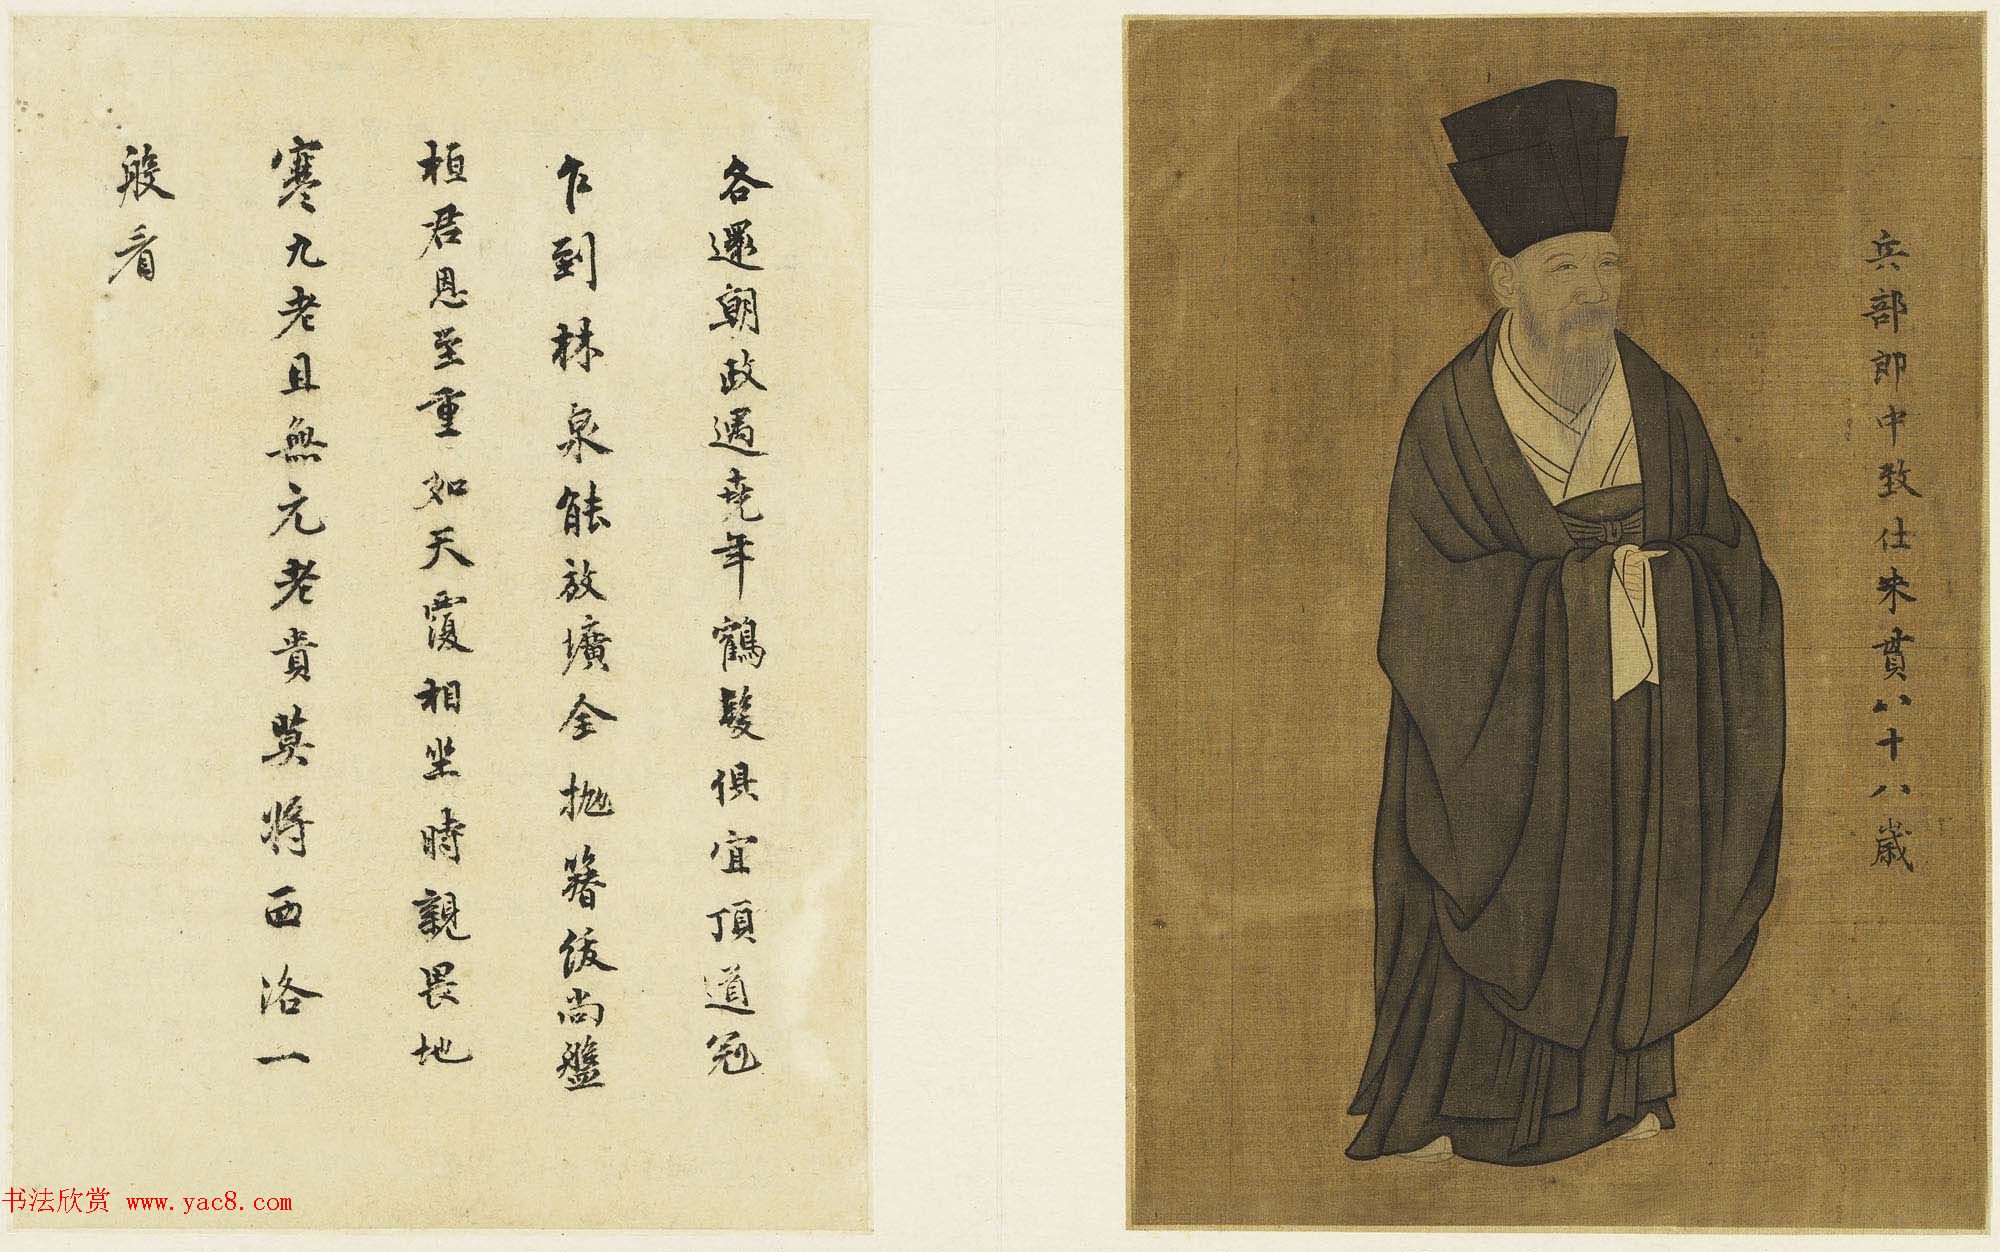 兵部郎中致仕朱貫八十八歲
各還朝政遇堯年鶴髮俱宜頂道冠
乍到林泉能放曠全拋簪紱尚盤
桓君恩至重如天覆相坐時親畏地
寒九老且無元老貴莫將西洛一
般看
书法欣赏 www.yac8.com